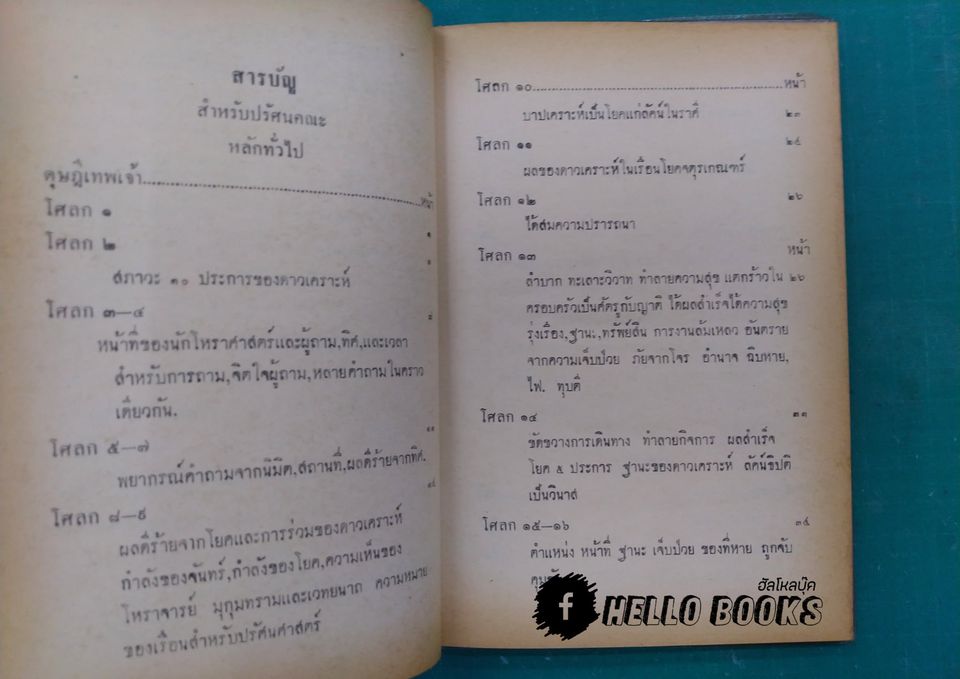 สารบัญ
สำหรับปรัศนคณะ
หลักทั่วไป
ดุษฎีเทพเจ้า..............................หน้า
โศลก ๑ ๑
โศลก ๒
สภาวะ ๑๐ ประการของดาวเคราะห์
โศลก ๓—๔
หน้าที่ของนักโหราศาสตร์และผู้ถาม,ทิศ,และเวลา
สำหรับการถาม,จิตใจผู้ถาม,หลายคำถามในคราว
เดียวกัน.
โศลก ๕—๗
พยากรณ์คำถามจากนิมิต,สถานที่,ผลดีร้ายจากทิศ.
โศลก ๘—๙
ผลดีร้ายจากโยคและการร่วมของดาวเคราะห์
กำลังของจันทร์,กำลังของโยค,ความเห็นของ
โหราจารย์ มุกุมทรามและเวทยนาถ ความหมาย
ของเรือนสำหรับปรัศนศาสตร์
โศลก ๑๐..............................หน้า
บาปเคราะห์เป็นโยคแก่ลัคน์ในราศี ๒๓
โศลก ๑๑ ๒๔
ผลของดาวเคราะห์ในเรือนโยคจตุรเกณฑร์
โศลก ๑๒ ๒๖
ได้สมความปรารถนา
โศลก ๑๓ หน้า
ลำบาก ทะเลาะวิวาท ทำลายความสุข แตกร้าวใน ๒๖
ครอบครัวเป็นศัตรูกับญาติ ได้ผลสำเร็จได้ความสุข
รุ่งเรือง,ฐานะ,ทรัพย์สิน การงานล้มเหลว อันตราย
จากความเจ็บป่วย ภัยจากโจร อำนาจ ฉิบหาย,
ไฟ. ทุบตี
โศลก ๑๔ ๓๑
ขัดขวางการเดินทาง ทำลายกิจการ ผลสำเร็จ
โยค ๕ ประการ ฐานะของดาวเคราะห์ ลัคน์ธิปติ
เป็นวินาส
โศลก ๑๕—๑๖ ๓๔
ตำแหน่ง หน้าที่ ฐานะ เจ็บป่วย ของที่หาย ถูกจับ
ฮัลโหลบุ๊ค
f HELLO BOOKS